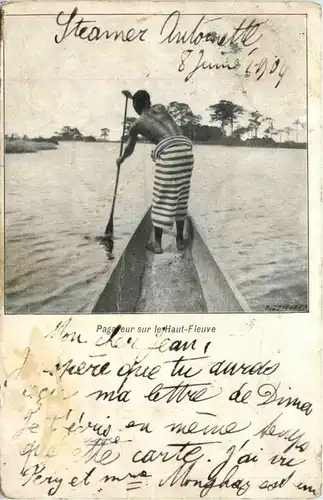 Steamer Antoinette
8 Juin 1904
Pagayeur sur le Haut-Fleuve
Mon cher Jean,
J'espère que tu auras
reçu ma lettre de Dima
Je t'écris en même temps
que cette carte. J'ai vu
Pery et Mme
est un